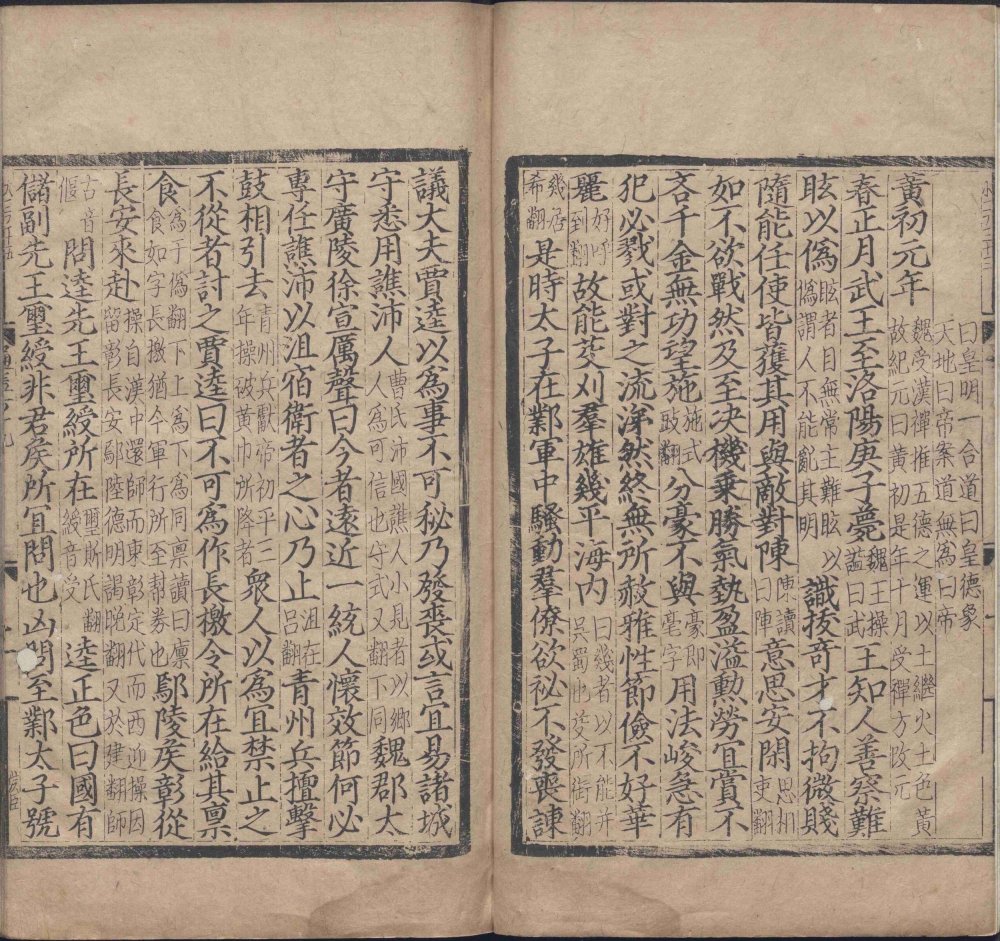 曰皇明一合道曰皇德象
天地曰帝案道無為曰帝
黃初元年 魏受漢禪推五德之運以土繼火土色黃 故紀元曰黃初是年十月受禪方改元
春正月武王至洛陽庚子薨 魏王操 諡曰武 王知人善察難
眩以偽 眩者目無常主難眩以 偽謂人不能亂其明 識拔奇才不拘微賤
隨能任使皆獲其用與敵對陳 陳讀 曰陣 意思安閑 思相 吏翻
如不欲戰然及至決機乗勝氣埶盈溢勳勞宜賞不
吝千金無功望施 施式 豉翻 分豪不與 豪即 毫字 用法峻急有
犯必戮或對之流涕然終無所赦雅性節儉不好華
麗 好呼 到翻 故能芟刈羣雄幾平海内 曰幾者以不能并 吳蜀也芟所銜翻
幾居 希翻 是時太子在鄴軍中騷動羣僚欲祕不發喪諫
議大夫賈逵以爲事不可秘乃發喪或言宜易諸城
守悉用譙沛人 曹氏沛國譙人小見者以鄉 人為可信也守式又翻下同 魏郡太
守廣陵徐宣厲聲曰今者遠近一統人懷效節何必
專任譙沛以沮宿衛者之心乃止 沮在 吕翻 青州兵擅擊
鼓相引去 青州兵獻帝初平三 年操破黃巾所降者 衆人以為宜禁止之
不從者討之賈逵曰不可為作長檄令所在給其稟
食 為于偽翻下上為下為同稟讀曰廩 食如字長檄猶今軍行所至幫券也 鄢陵矦彰從
長安來赴 操自漢中還師而東彰定代而西迎操因 留彰長安鄢陸德明謁晚翻又於建翻師
古音 偃 問逵先王璽綬所在 璽斯氏翻 綬音受 逵正色曰國有
儲副先王璽綬非君矦所宜問也凶問至鄴太子號